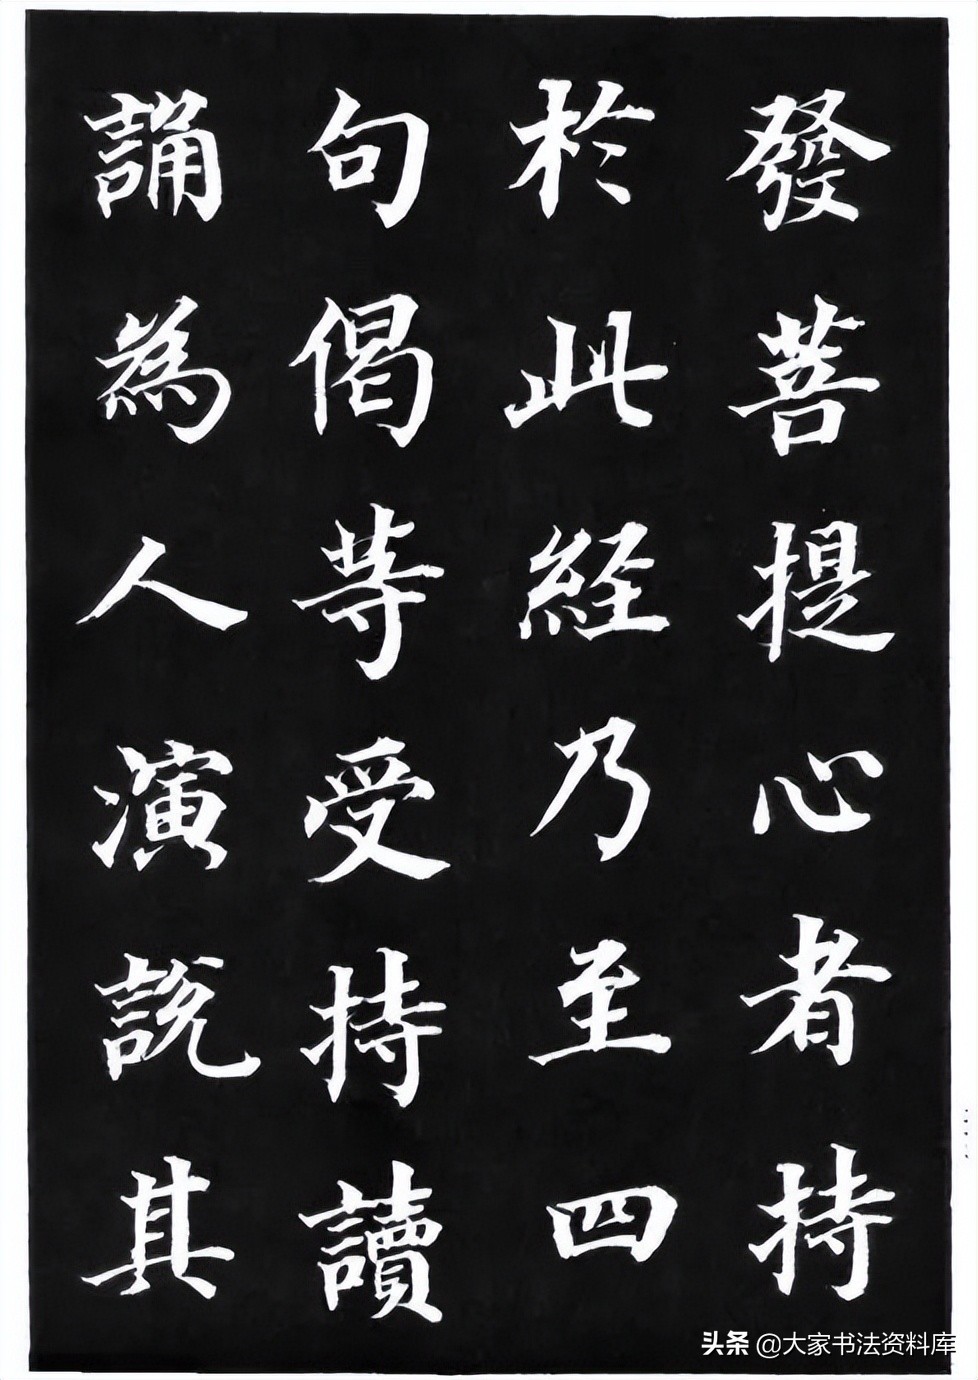 發菩提心者持
於此經乃至四
句偈等受持讀
誦為人演說其
头条 @大家书法资料库